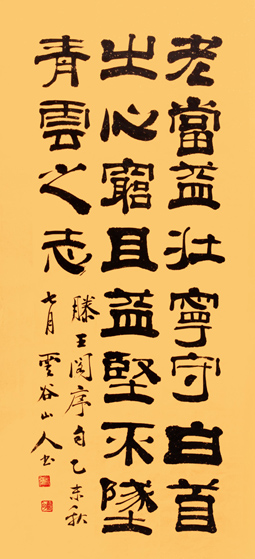 老當益壯寧守白首
之心窮且益堅不墜
青雲之志
滕王閣序句乙未秋
七月雲谷山人书